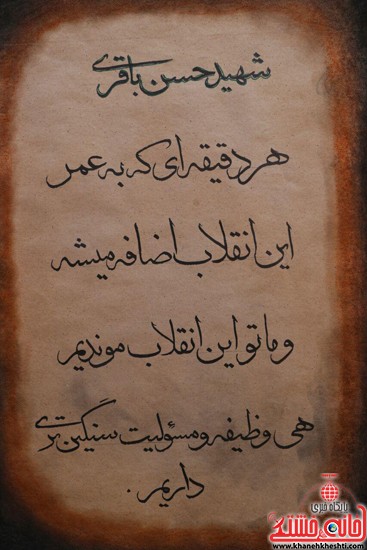 شهید حسن باقری
هر دقیقه ای که به عمر
این انقلاب اضافه میشه
و ما تو این انقلاب موندیم
هی وظیفه و مسئولیت سنگین تری
داریم.
پایگاه خبری
خانه خشتی
www.khanehkheshti.com